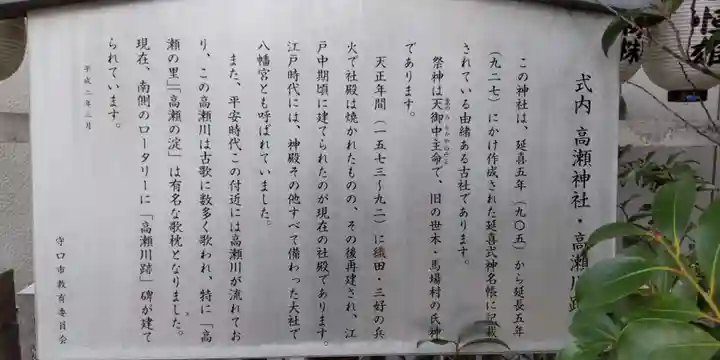 式内 高瀬神社・高瀬川跡
この神社は、延喜五年（九〇五）から延長五年
（九二七）にかけ作成された延喜式神名帳に記載
されている由緒ある古社であります。
祭神は天御中主命で、旧の世木・馬場村の氏神
であります。
天正年間（一五七三〜九二）に織田・三好の兵
火で社殿は焼かれたものの、その後再建され、江
戸中期頃に建てられたのが現在の社殿であります。
江戸時代には、神殿その他すべて備わった大社で
八幡宮とも呼ばれていました。
また、平安時代この付近には高瀬川が流れてお
り、この高瀬川は古歌に数多く歌われ、特に「高
瀬の里」「高瀬の淀」は有名な歌枕となりました。
現在、南側のロータリーに「高瀬川跡」碑が建て
られています。
平成二年三月
守口市教育委員会